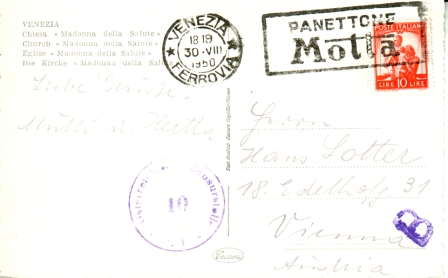 VENEZIA
Chiesa «Madonna della Salute»
Church «Madonna della Salute»
Église «Madonna della Salute»
Die Kirche «Madonna della Salute»
VENEZIA
18 19
30·VIII
1950
FERROVIA
PANETTONE
Motta
POSTE ITALIANE
LIRE 10 LIRE
Liebe Grüsse
Mutti u. Hertha
Herrn
Hans Lotter
18. Edelhofg. 31
Vienna
Austria